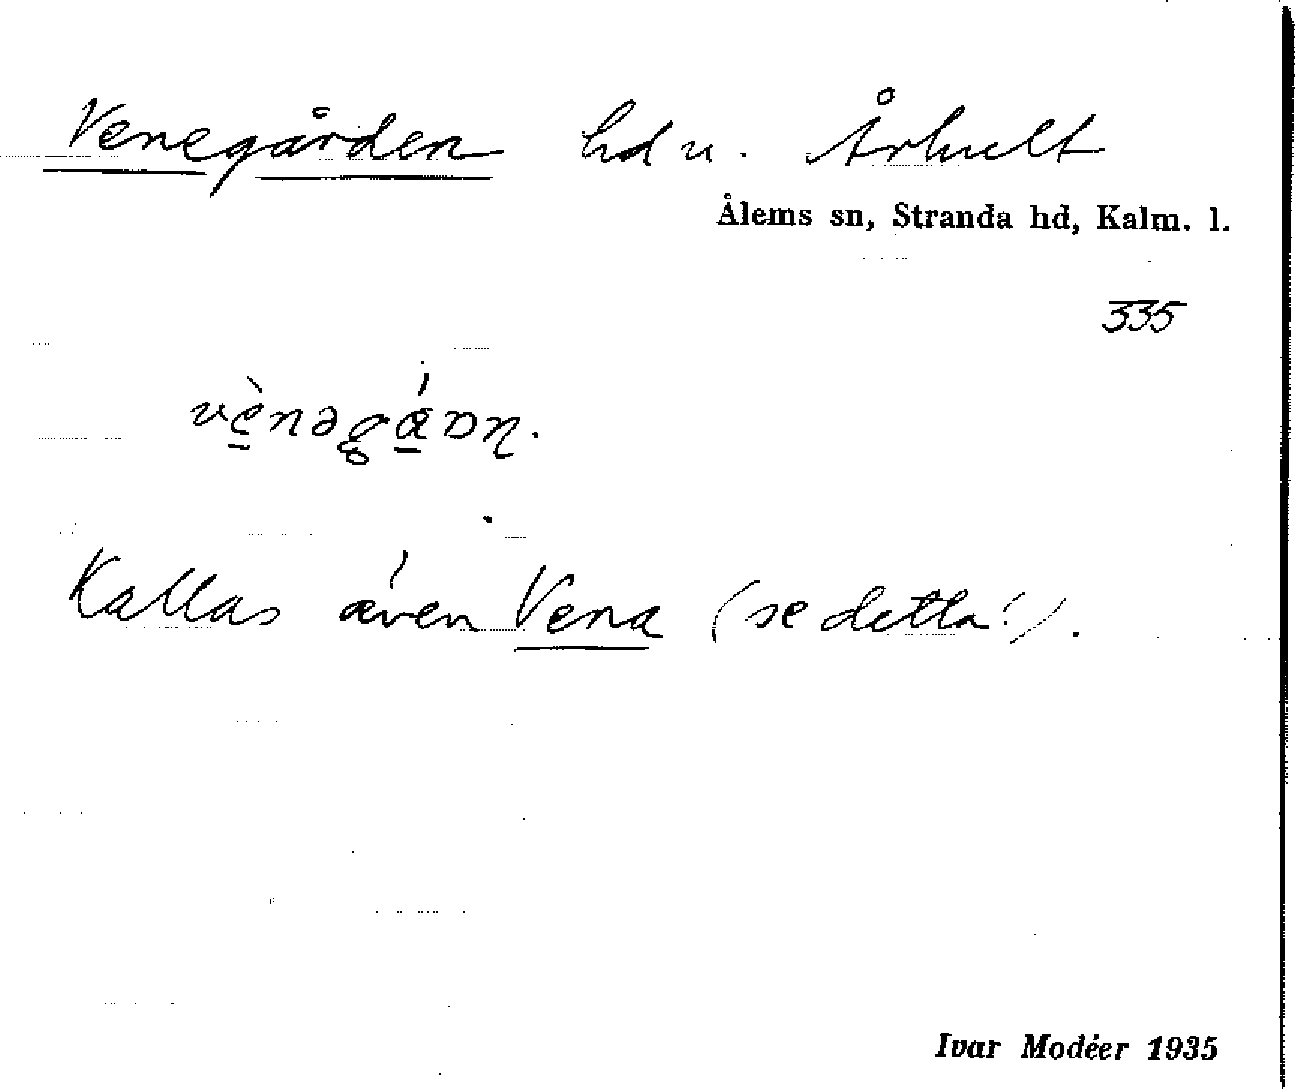 Venegården hd u. Århult
Ålems sn, Stranda hd, Kalm. l.
335
vènəgá̱ɒn.
Kallas även Vena (se detta!).
Ivar Modéer 1935